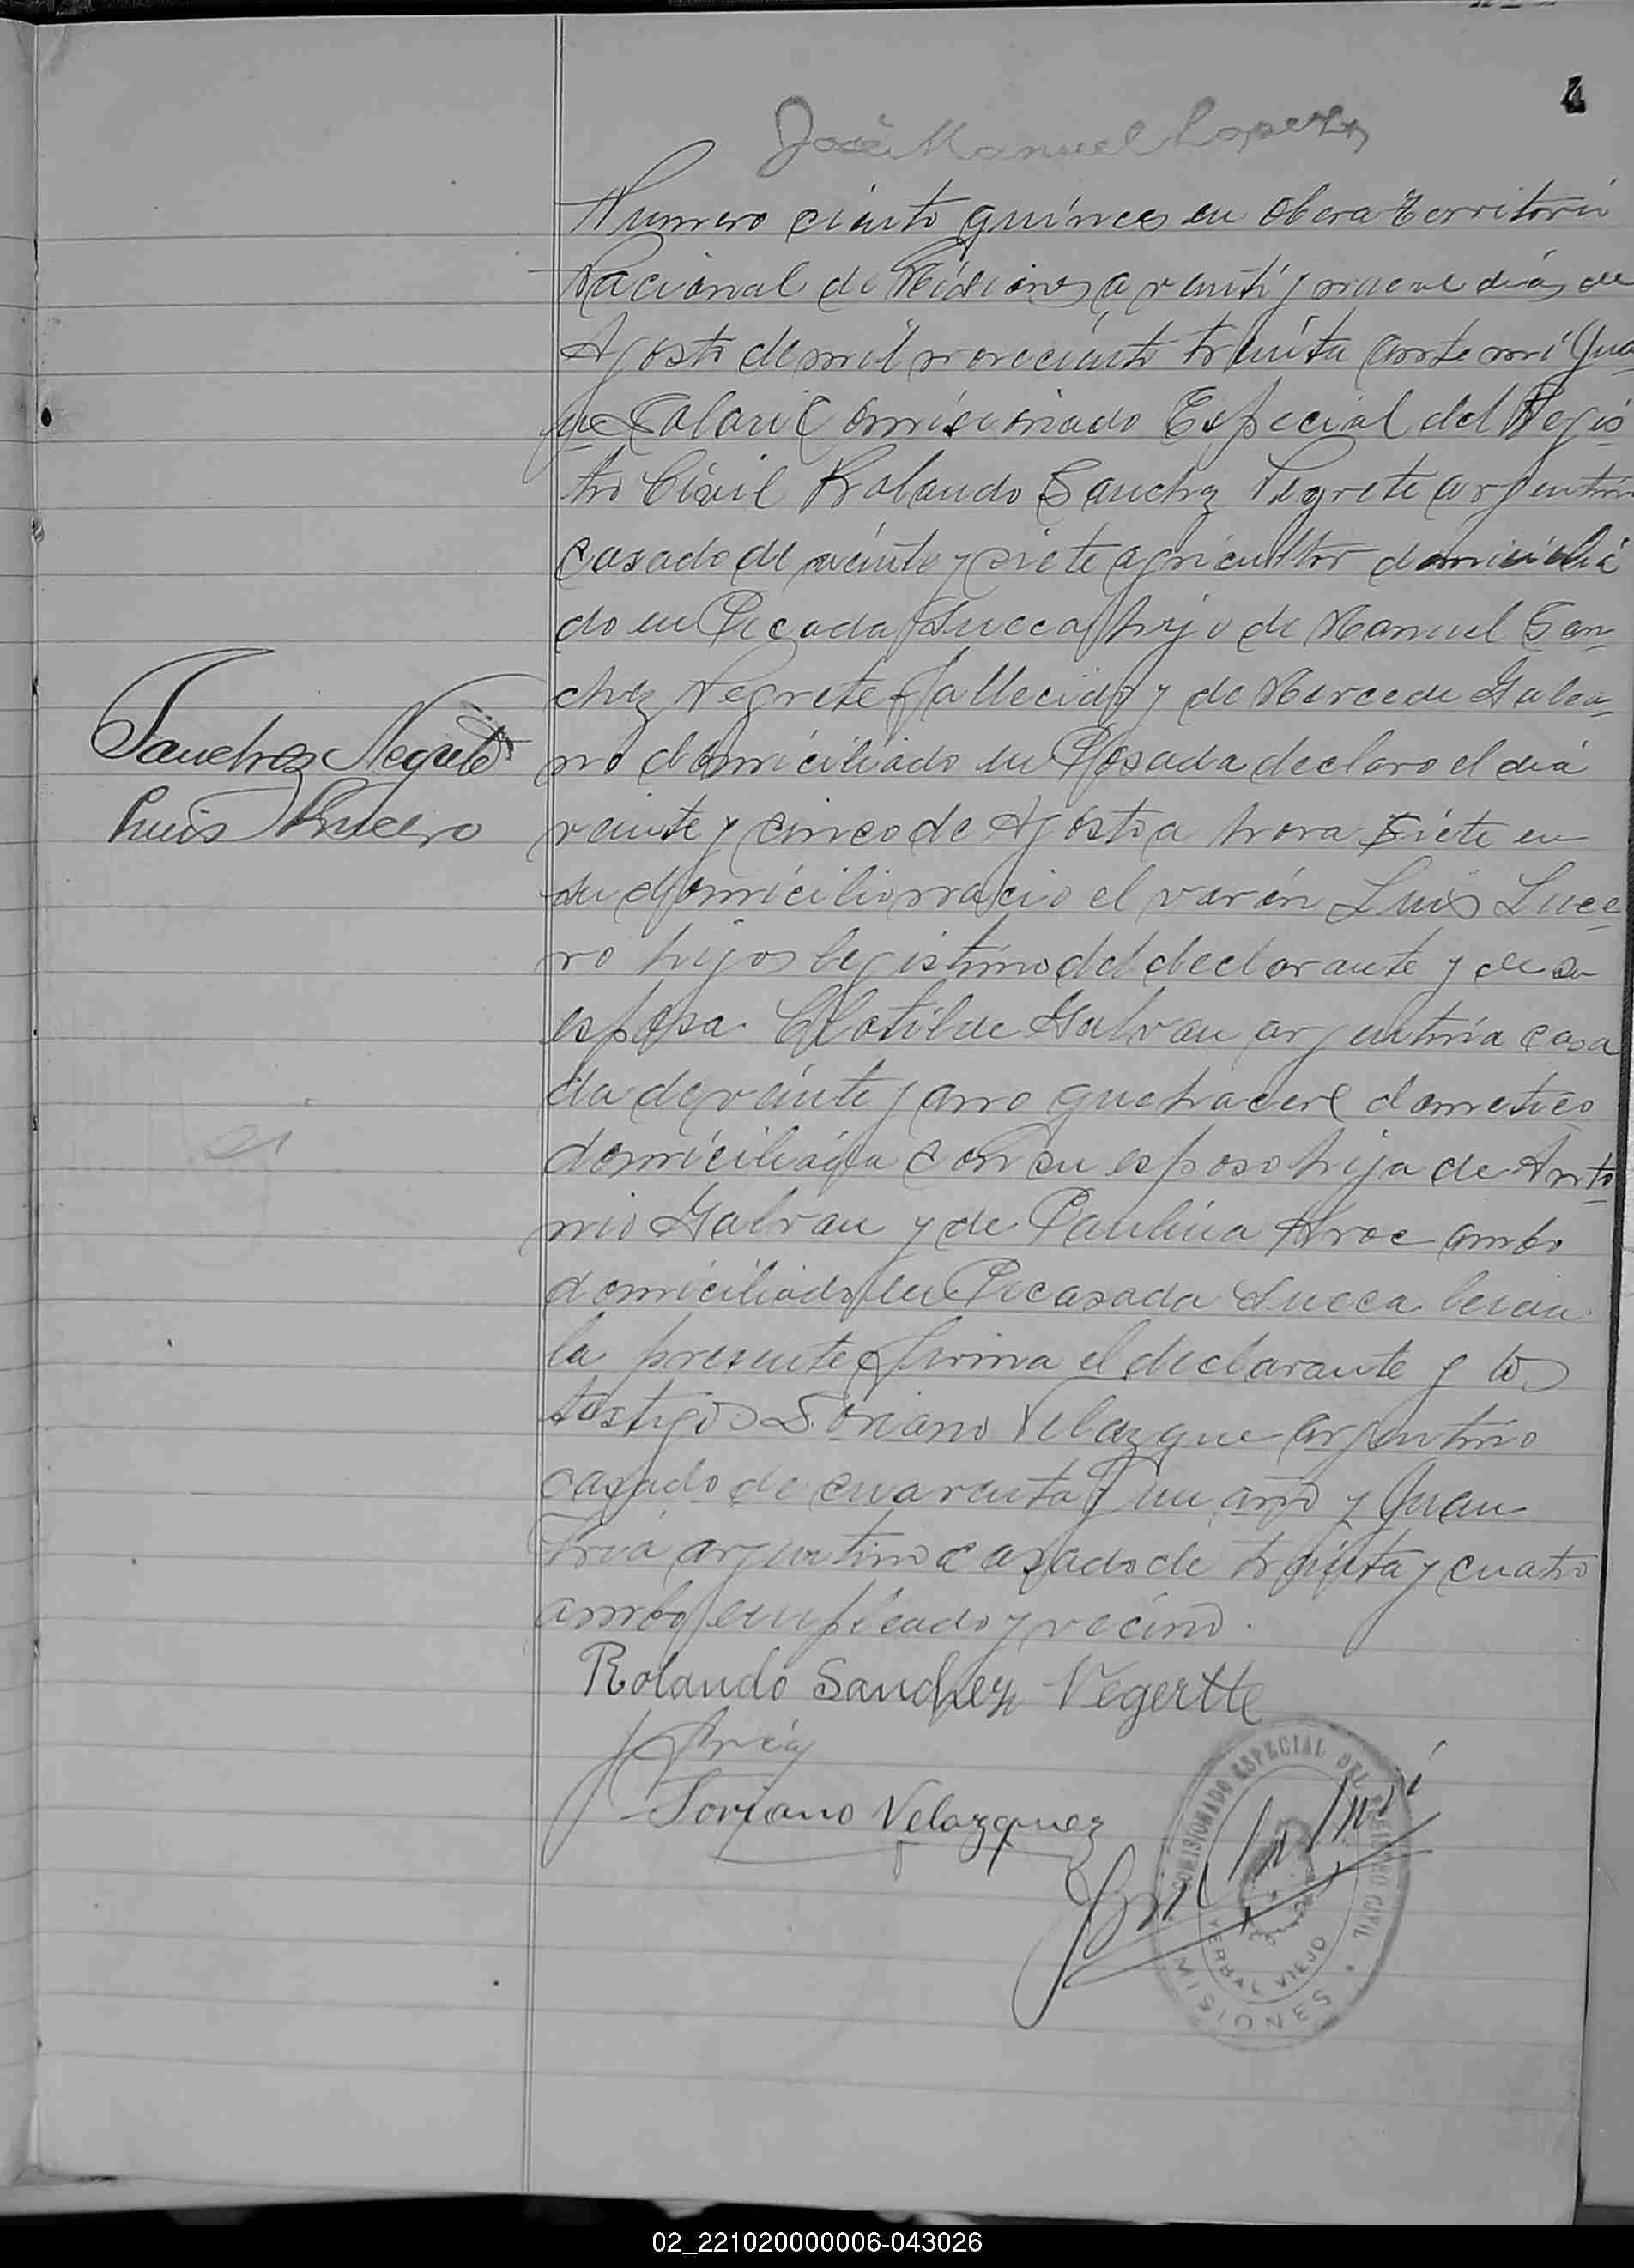 José Manuel Lopez
Numero ciento quince en Obera Territorio
Nacional de Misiones a veinti y nueve dias de
Agosto de mil noveciento treinta ante mi
Comisionado Especial del Regis-
tro Civil Rolando Sanchez Negrete argentino
casado de veinte y siete agricultor domicilia
do en Picada Sueca hijo de Manuel San-
chez Negrete fallecido y de Mercede Galea-
no domiciliado en Posada declaro el dia
Sanchez Negrete
Luis Lucero
veinte y cinco de Agosto a hora siete en
su domicilio nacio el varón Luis Luce-
ro hijos legistimo del declarante y de su
esposa Clotilde Galvan argentina casa
da de veinte y año quehacere dometico
domiciliada con su esposo hija de Anto-
nio Galvan y de Paulina ambo
domiciliado en Picasada Sueca leida
la presente firma el declarante y los
testigos Soriano Velazque argentino
casado de cuarenta y un año y Juan
argentino casado de treinta y cuatro
ambo empleado y vecino.
Rolando Sanchez Negertte
Soriano Velazquez
COMISIONADO ESPECIAL DEL REGISTRO CIVIL
YERBAL VIEJO
MISIONES
02_221020000006-043026